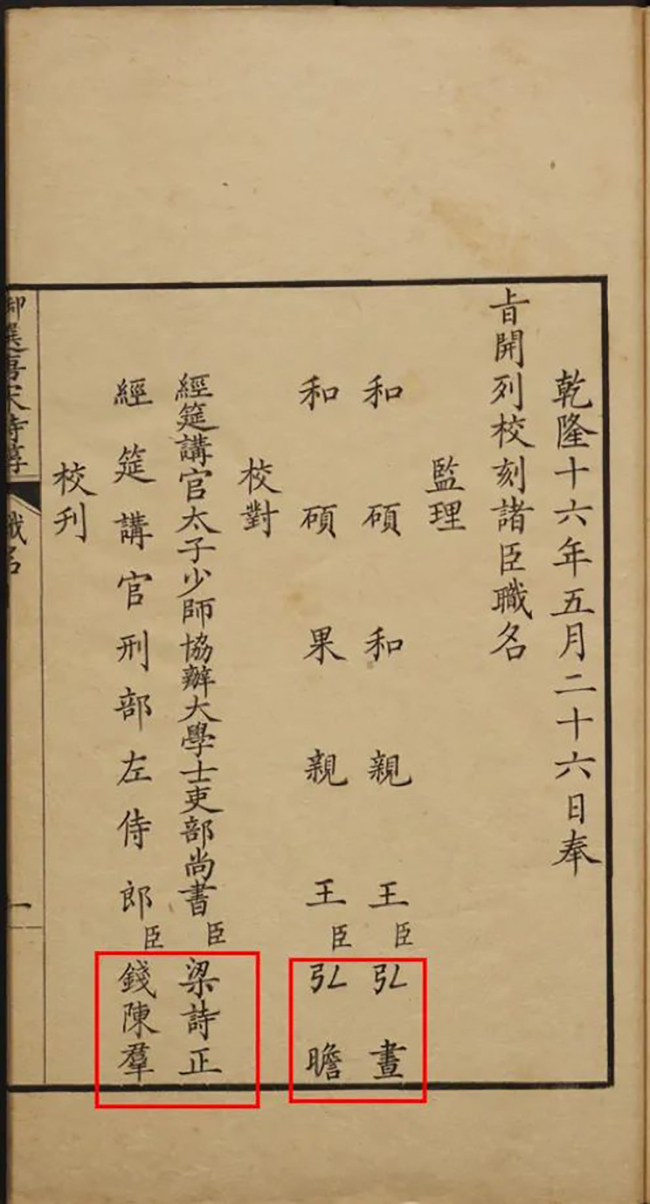 乾隆十六年五月二十六日奉
旨開列校刻諸臣職名
監理
和碩和親王臣弘晝
和碩果親王臣弘瞻
校對
經筵講官太子少師協辦大學士吏部尚書臣梁詩正
經筵講官刑部左侍郎臣錢陳羣
校刊
御選唐宋詩醇
職名
一